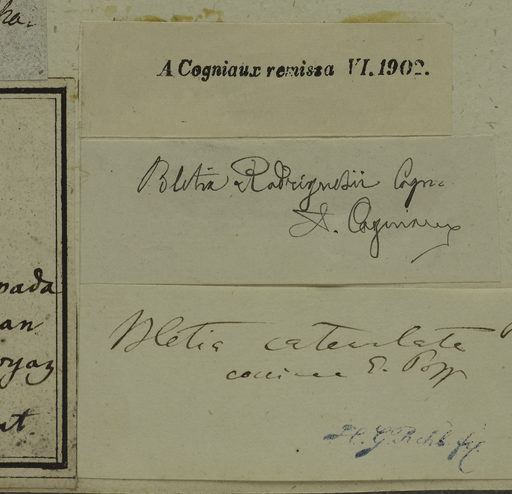 A Cogniaux remissa VI.1902.
Bletia Rodriguesii Cogn.
A. Cogniaux
Bletia catenulata
coccinea E. Popp
H. G. Rchb. f.
pada
an
oyaz